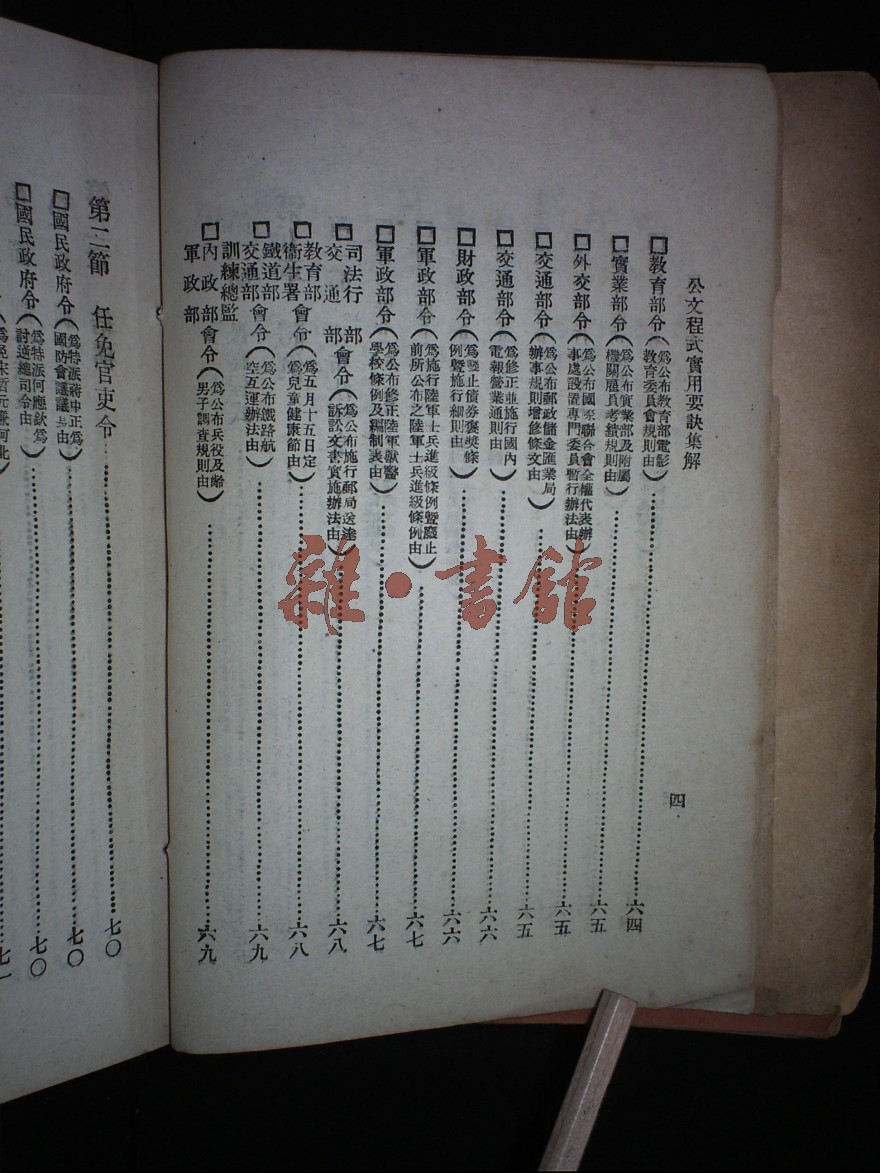 公文程式實用要訣集解
四
□教育部令(爲公布教育部電影教育委員會規則由)……六四
□實業部令(爲公布實業部及附屬機關雇員考績規則由)……六五
□外交部令(爲公布國際聯合會全權代表辦事處設置專門委員暫行辦法由)……六五
□交通部令(爲公布郵政儲金匯業局辦事規則增修條文由)……六五
□交通部令(爲修正並施行國內電報營業通則由)……六六
□財政部令(爲廢止債券褒獎條例暨施行細則由)……六六
□軍政部令(爲施行陸軍士兵進級條例暨廢止前所公布之陸軍士兵進級條例由)……六七
□軍政部令(爲公布修正陸軍獸醫學校條例及編制表由)……六七
□司法行部交通部會令(爲公布施行郵局送達訴訟文書實施辦法由)……六八
□教育部衞生署會令(爲五月十五日定爲兒童健康節由)……六八
□鐵道部交通部會令(爲公布鐵路航空互運辦法由)……六九
□訓練總監內政部軍政部會令(爲公布兵役及齡男子調查規則由)……六九
第二節 任免官吏令……七〇
□國民政府令(爲特派蔣中正爲國防會議議長由)……七〇
□國民政府令(爲特派何應欽爲討逆總司令由)……七〇
七一
雜·書館